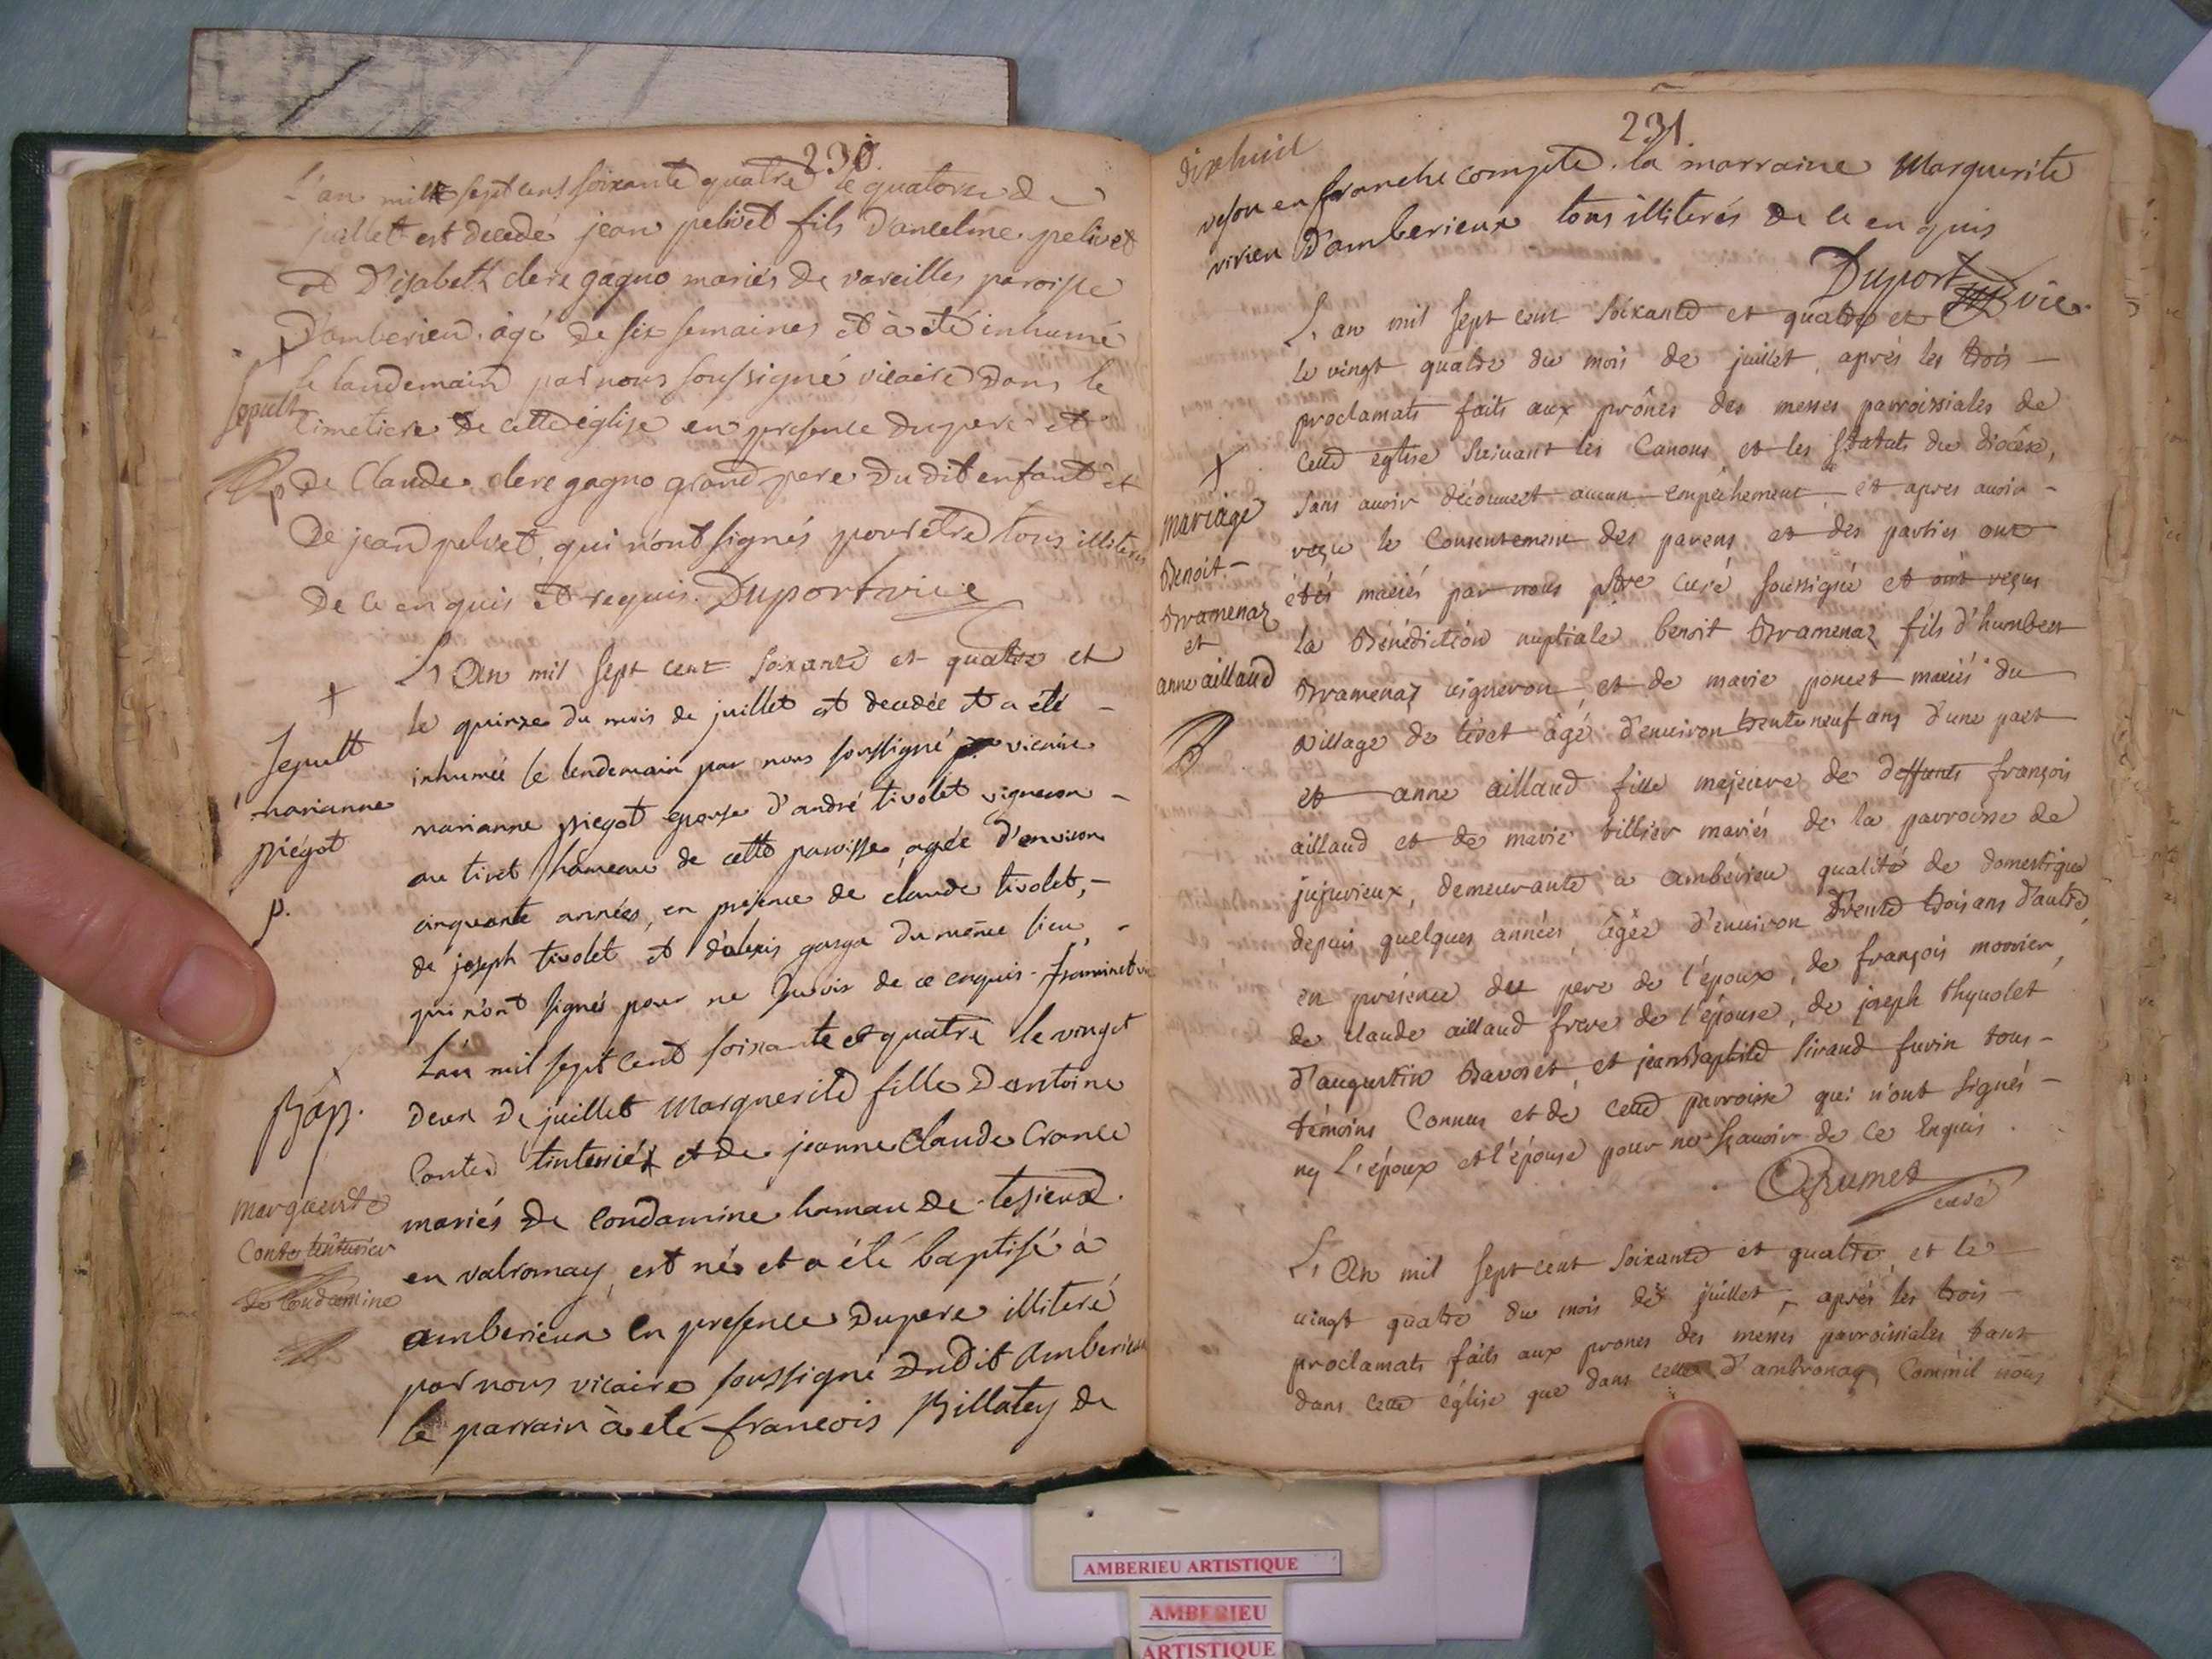 230.
L'an mil sept cent soixante quatre le quatorze de
juillet est decedé jean pelivet fils d'ancelme pelivet
et D'isabeth clere gagno mariés de vareilles paroisse
D'amberieu. âgé de six semaines et à été inhumé
le landemain par nous soussigné vicaire dans le
Sepult
cimetiere de cette église en presence du pere et
p de Claude clere gagno grand pere du dit enfant et
de jean pelivet, qui n'ont signés pour être tous illiterés
de ce enquis et requis. Duport vice
L'An mil sept cent soixante et quatre et
le quinze du mois de juillet est decedée et a été
Sepult
marianne
piégot
p.
inhumée le lendemain par nous soussigné vicaire
marianne piegot epouse d'andré tivolet vigneron
au tiret hameau de cette paroisse, agée d'environ
cinquante années, en presence de claude tivolet,
de joseph tivolet et d'alexis garga du même lieu,
qui n'ont signés pour ne sçavoir de ce enquis.
L'an mil sept cent soixante et quatre le vingt
Bap.
Marguerite
Conte tinturier
de Condamine
deux de juillet Marguerite fille D'antoine
Conte tinturier et de jeanne Claude Crance
mariés de Condamine hamau de
en valromay, est née et a été baptisé à
amberieux en presence du pere illiteré
par nous vicaire soussigné du dit Amberieux
le parrain à eté francois Billatey de
231.
dixhuit
veson en franche compte. la marraine Marguerite
vivien d'amberieux tous illiterés de ce en quis
Duport vic.
L'an mil sept cent soixante et quatre et
le vingt quatre du mois de juillet, après les trois
proclamats faits aux prônes des messes parroissiales de
cette eglise suivant les Canons, et les statuts du diocèse,
sans avoir decouvert aucun empêchement, et apres avoir
mariage
Benoit
Bramenaz
et
anne aillaud
reçu le Consentement des parens et des parties ont
étés mariés par nous ptre curé soussigné et ont reçus
la Bénédiction nuptiale benoit Bramenaz fils d'humbert
Bramenaz vigneron et de marie poncet mariés du
village de tiret âgé d'environ trente neuf ans d'une part
et anne aillaud fille majeure de deffunts françois
aillaud et de marie billier mariés de la parroisse de
jujurieux, demeurante a ambérieu qualité de domestique
depuis quelques années âgée d'environ trente trois ans d'autre,
en présence du pere de l'époux, de françois monier,
de claude aillaud frere de l'épouse, de joseph thyvolet
d'augustin Bavoset, et jean Baptiste sivaud furin tous
témoins Connus et de cette parroisse qui n'ont signés
ny l'époux et l'épouse pour ne sçavoir de ce Enquis.
Grumet
curé
L'An mil sept cent soixante et quatre, et le
vingt quatre du mois de juillet, après les trois
proclamats faits aux prones des messes parroissiales tant
dans cette église que dans celle d'ambronay, Comm'il nous
AMBERIEU ARTISTIQUE
AMBERIEU
ARTISTIQUE